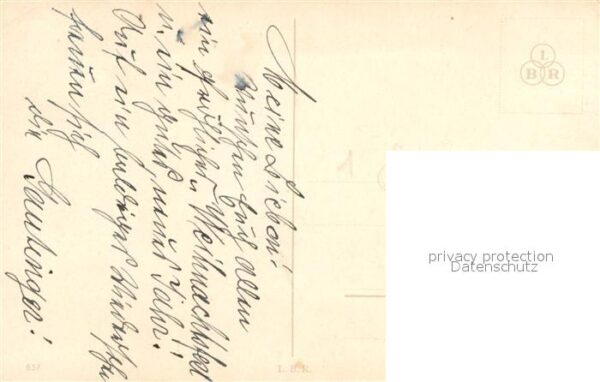 Meine Lieben!
wünschen Euch allen
ein fröhliches Weihnachtsfest
u. ein gutes neues Jahr!
Auf ein baldiges Wiedersehn
freuen sich
die Saulinger!
L
B R
privacy protection
Datenschutz
637
L. B. R.